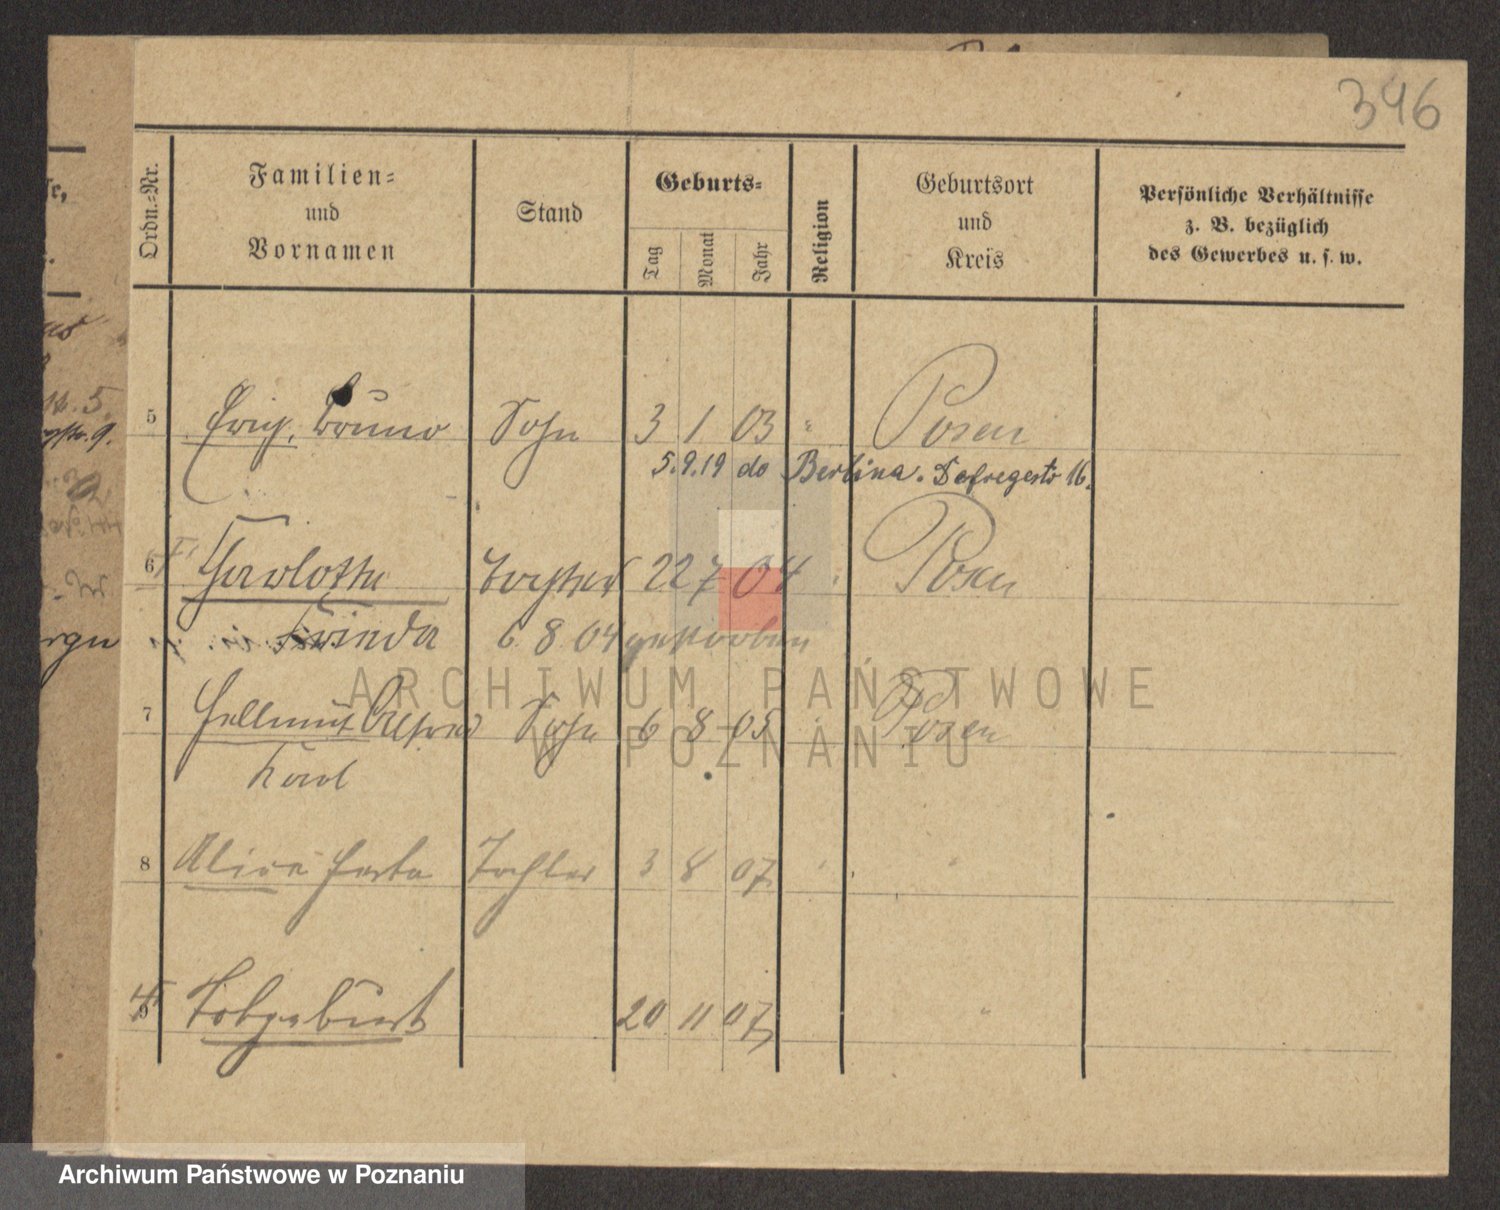 346
Ordn.-Nr.
Familien-
und
Vornamen
Stand
Geburts-
Tag
Monat
Jahr
Religion
Geburtsort
und
Kreis
Persönliche Verhältnisse
z. B. bezüglich
des Gewerbes u. s. w.
5 Erich, Bruno Sohn 3 1 03 " Posen
5.9.19 do Berlin a. Defregerstr 16.
6 Charlotte Tochter 22 7 04 " Posen
Frieda 6 8 04 gestorben
7 Hellmut Alfred Sohn 6 8 05 " Posen
Karl
8 Alice Herta Tochter 3 8 07 " "
9 Totgeburt 20 11 07 "
ARCHIWUM PAŃSTWOWE
W POZNANIU
Archiwum Państwowe w Poznaniu